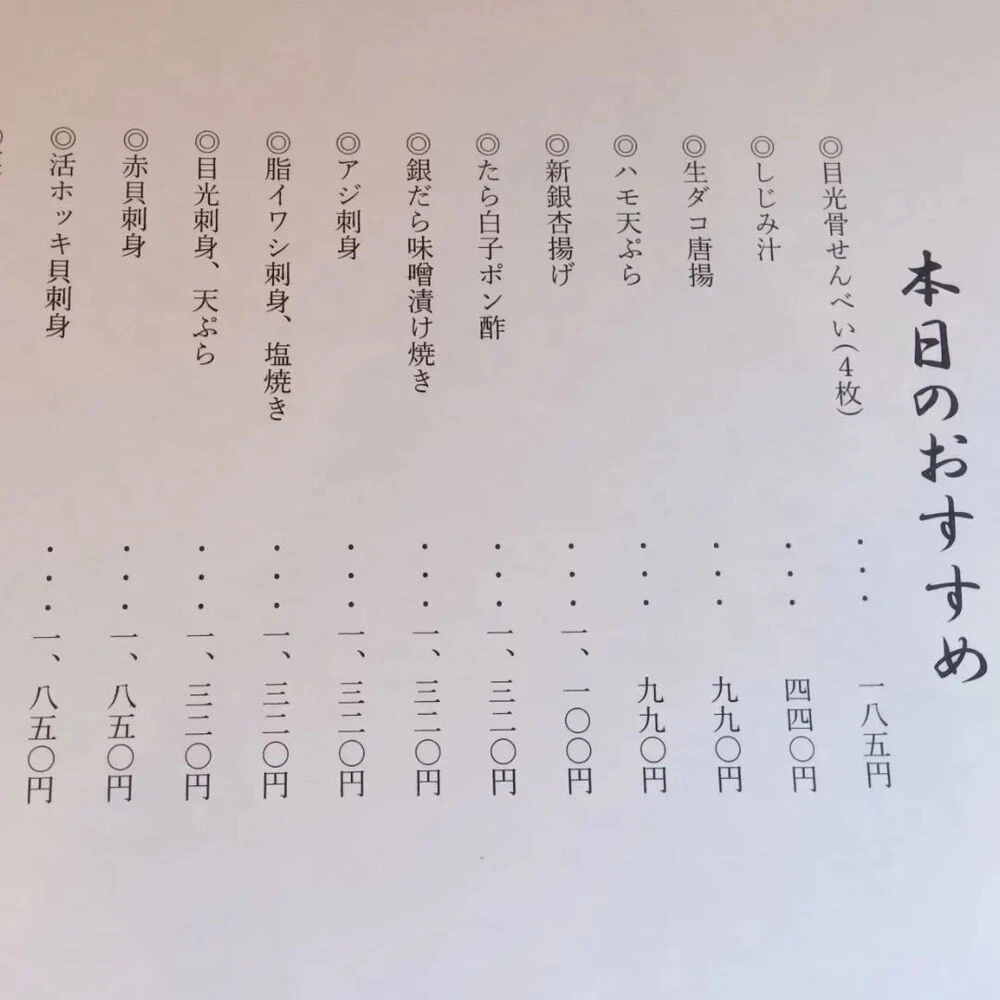 本日のおすすめ
◎目光骨せんべい(4枚)・・・一八五円
◎しじみ汁・・・四四〇円
◎生ダコ唐揚・・・九九〇円
◎ハモ天ぷら・・・九九〇円
◎新銀杏揚げ・・・一、一〇〇円
◎たら白子ポン酢・・・一、三二〇円
◎銀だら味噌漬け焼き・・・一、三二〇円
◎アジ刺身・・・一、三二〇円
◎脂イワシ刺身、塩焼き・・・一、三二〇円
◎目光刺身、天ぷら・・・一、三二〇円
◎赤貝刺身・・・一、八五〇円
◎活ホッキ貝刺身・・・一、八五〇円